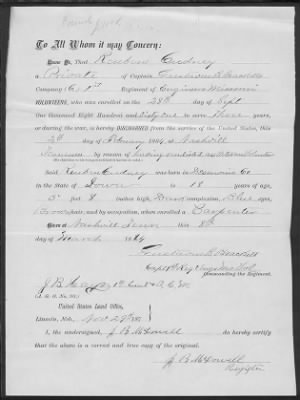 To All Whom it may Concern:
Know Ye, That Reuben Gudney
a Private of Captain
Company C, 1st Regiment of Engineers Missouri
VOLUNTEERS, who was enrolled on the 28th day of Sept
One Thousand Eight Hundred and Sixty One to serve Three years,
or during the war, is hereby DISCHARGED from the service of the United States, this
2d day of February 1864, at Nashville
Tennessee, by reason of having enlisted as Veteran Volunteer
Said Reuben Gudney was born in Desmoines Co
in the State of Iowa is 18 years of age,
5 feet 8 inches high, Dark complexion, Blue eyes,
Brown hair, and by occupation, when enrolled a Carpenter
at Nashville Tenn this 8th
day of March 1864
Commanding the Regiment.
J B 1st Lieut & A. C. M.
(A. G. O. No. 99.)
United States Land Office,
Lincoln, Neb., Nov 29th 187
I, the undersigned, J B McDowell do hereby certify
that the above is a correct and true copy of the original.
J. B. McDowell
Register